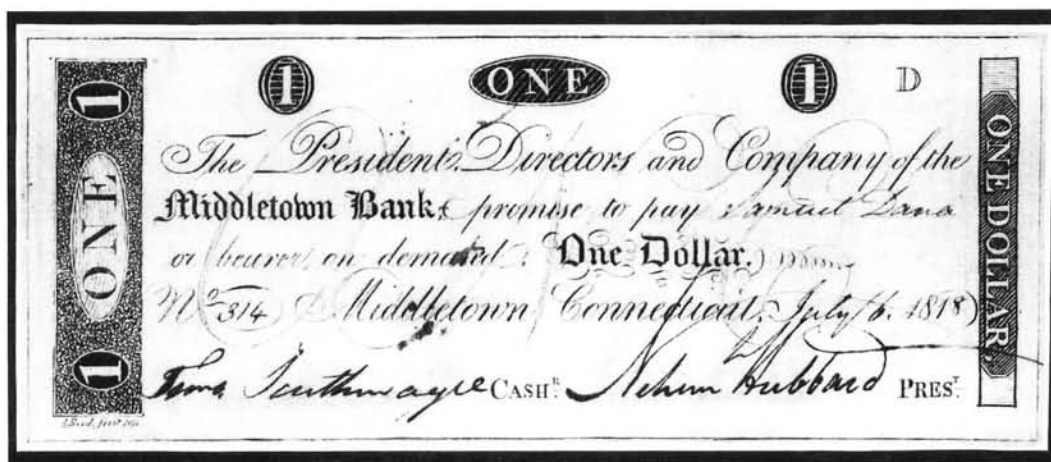 1 ONE 1 D
The President, Directors and Company of the
Middletown Bank, promise to pay Samuel Dana
or bearer, on demand One Dollar.
No 314 Middletown Connecticut, July 6. 1818
Southmayd CASHR. Nehem Hubbard PREST.
1 ONE 1
ONE DOLLAR.